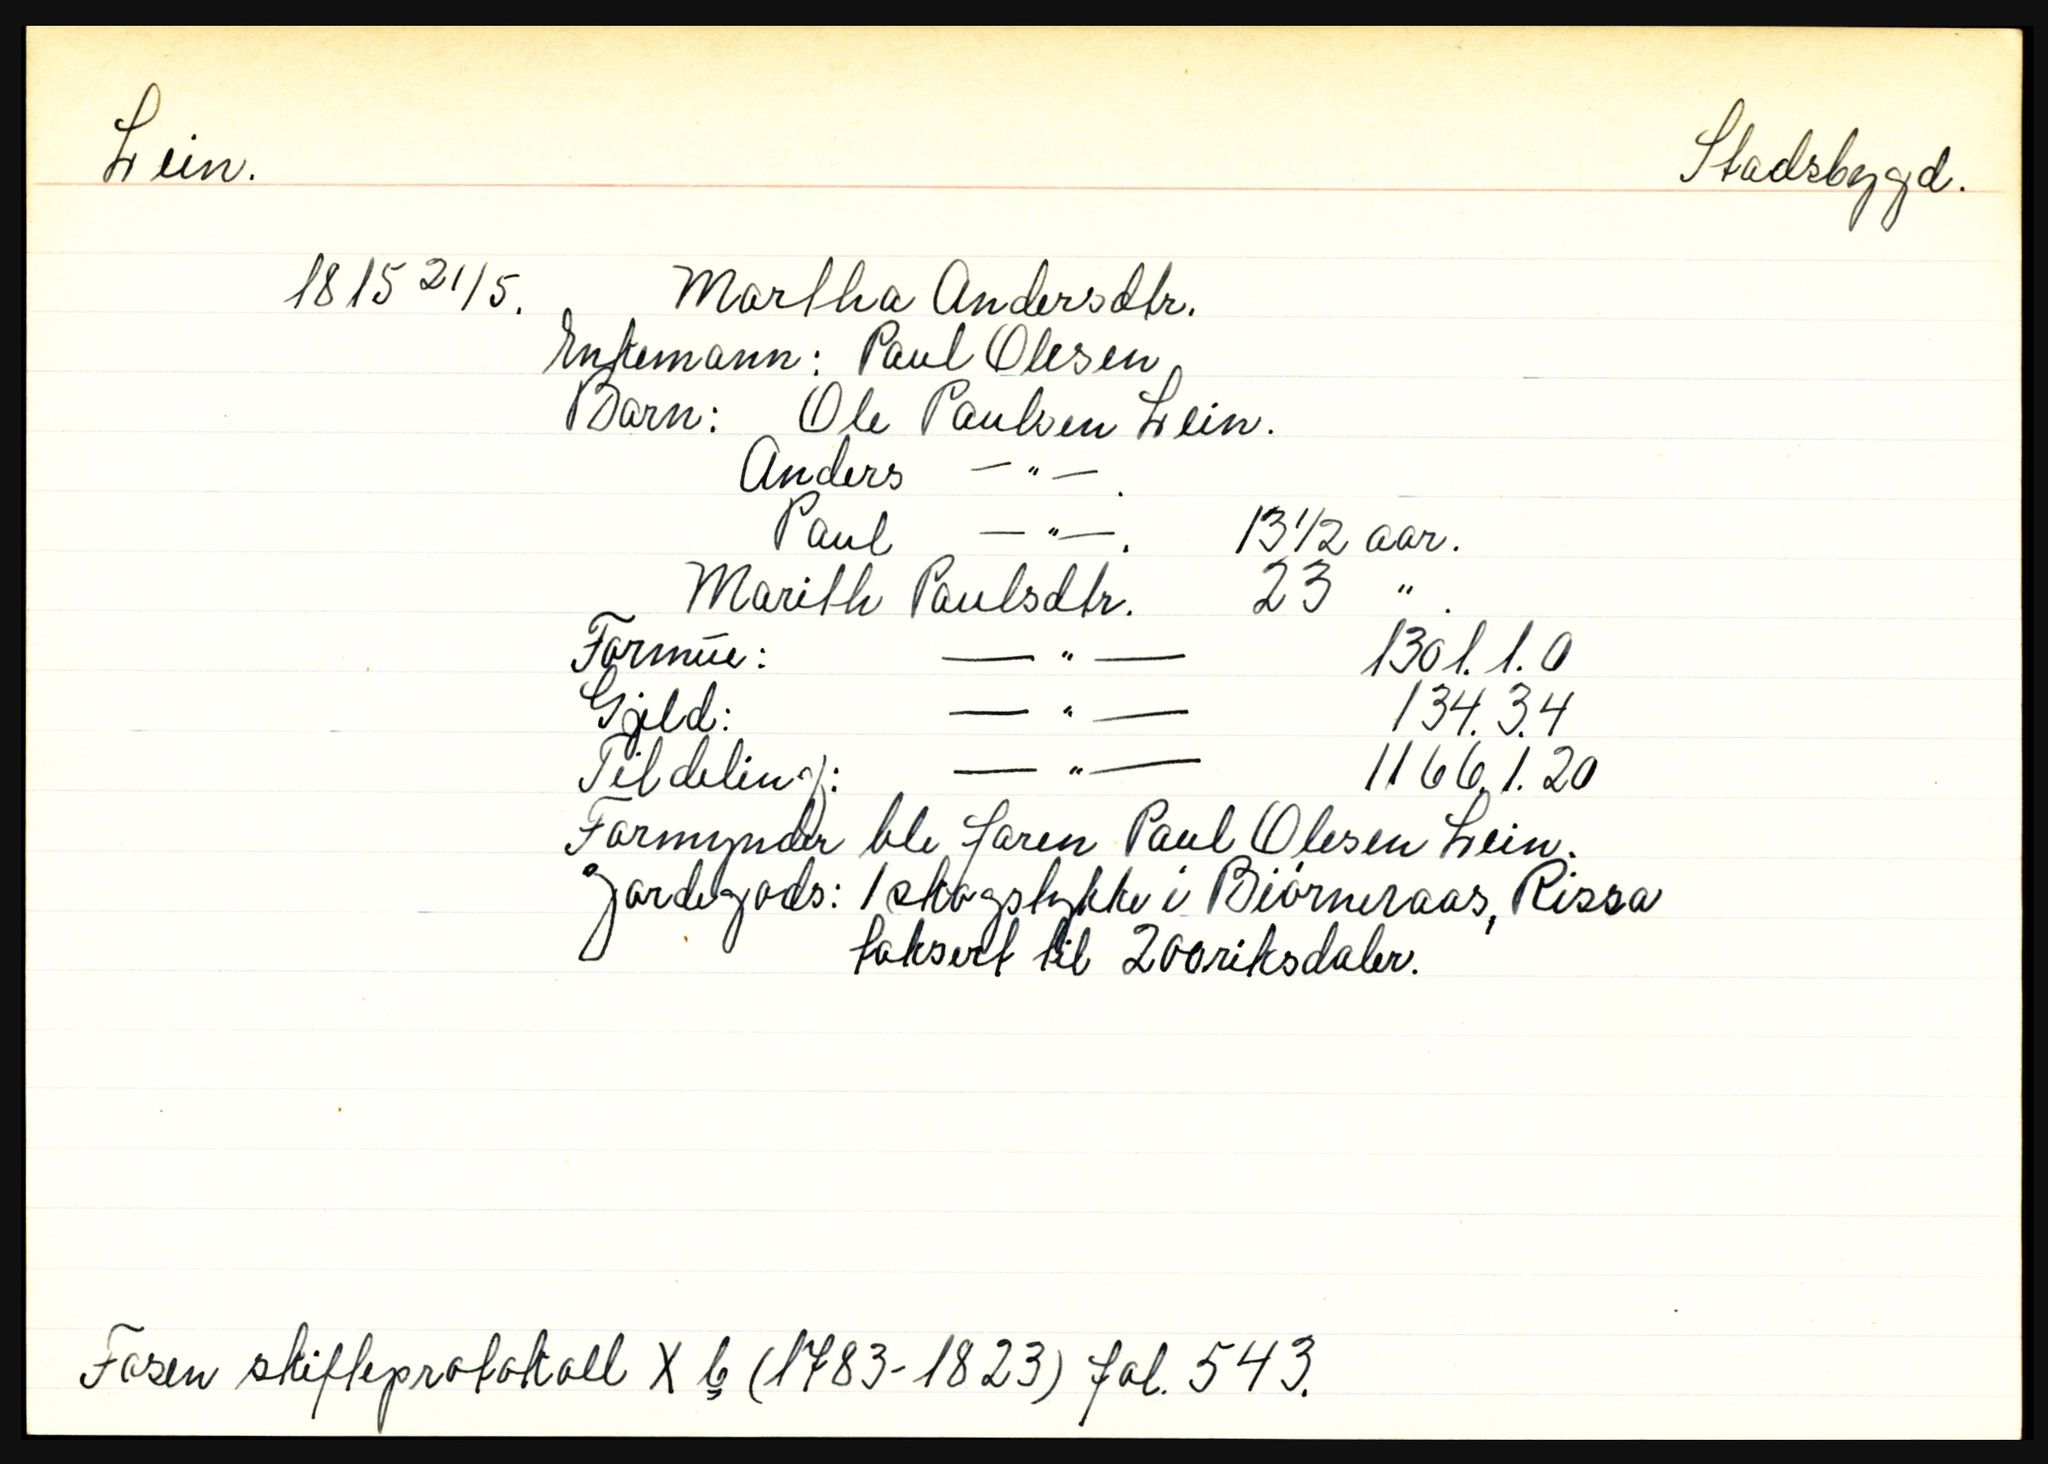 Lein.
Stadsbygd.
1815 21/5. Martha Andersdtr.
Enkemann: Paul Olesen
Barn: Ole Paulsen Lein.
Anders — " —.
Paul — " —. 13 1/2 aar.
Marith Paulsdtr. 23 " .
Formūe: — " — 1301. 1. 0
Gjeld: — " — 134. 3. 4
Til deling: — " — 1166. 1. 20
Formynder ble faren Paul Olesen Lein.
Jordegods: 1 skogstykke i Biörneraas, Rissa
taksert til 200 riksdaler.
Fosen skifteprotokoll X b (1783-1823) fol. 543.